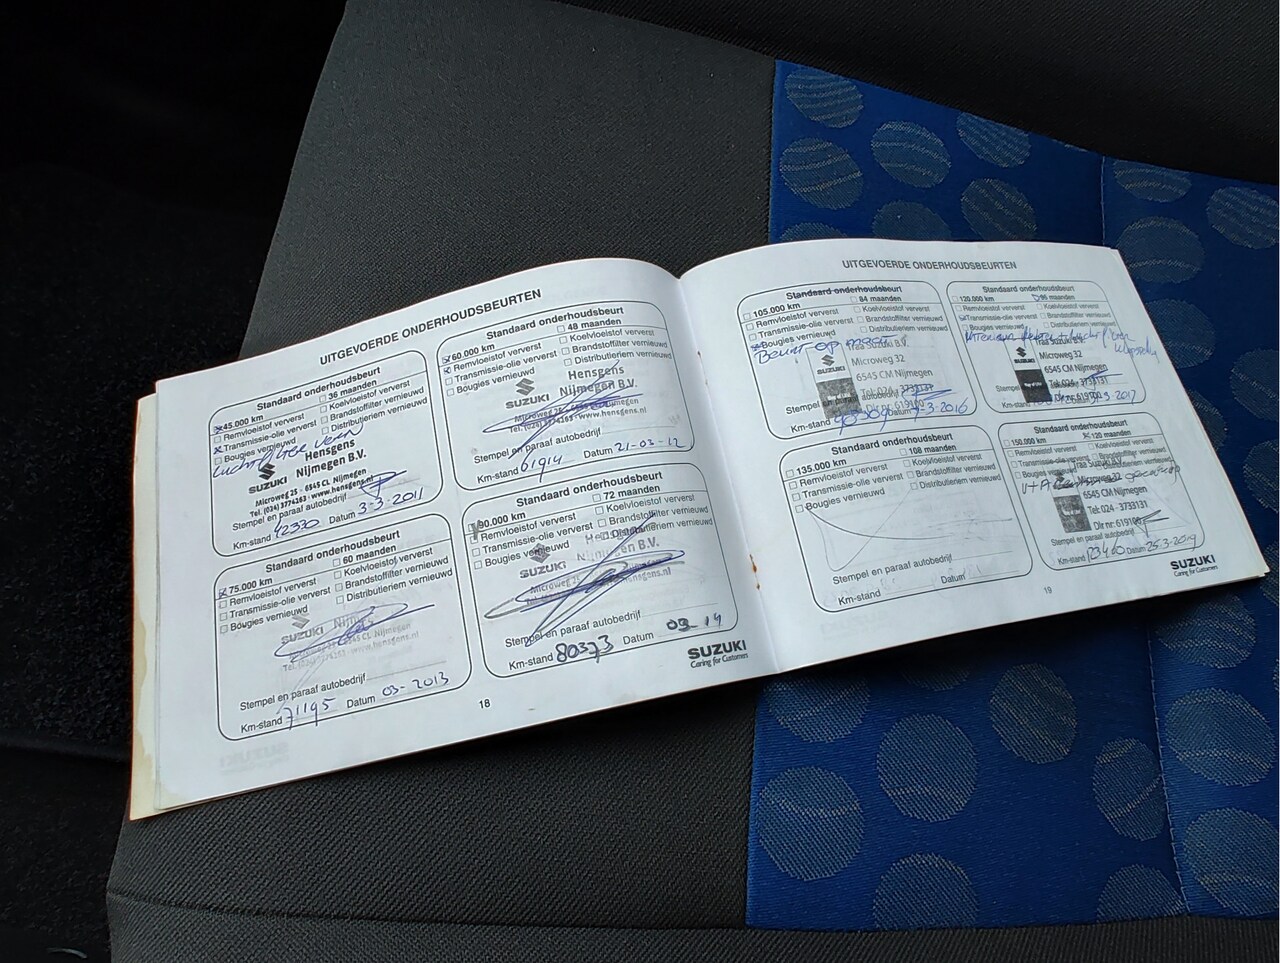 UITGEVOERDE ONDERHOUDSBEURTEN
Standaard onderhoudsbeurt
45.000 km
36 maanden
Remvloeistof ververst
Koelvloeistof ververst
Transmissie-olie ververst
Brandstoffilter vernieuwd
Bougies vernieuwd
Distributieriem vernieuwd
Hensgens
Nijmegen B.V.
SUZUKI
Microweg 25 - 6545 CL Nijmegen
Tel. (024) 3774263 - www.hensgens.nl
Stempel en paraaf autobedrijf
Km-stand 42330 Datum 3-3-2011
Standaard onderhoudsbeurt
60.000 km
48 maanden
Remvloeistof ververst
Koelvloeistof ververst
Transmissie-olie ververst
Brandstoffilter vernieuwd
Bougies vernieuwd
Distributieriem vernieuwd
Hensgens
Nijmegen B.V.
SUZUKI
Stempel en paraaf autobedrijf
Km-stand 61914 Datum 21-03-12
Standaard onderhoudsbeurt
75.000 km
60 maanden
Remvloeistof ververst
Koelvloeistof ververst
Transmissie-olie ververst
Brandstoffilter vernieuwd
Bougies vernieuwd
Distributieriem vernieuwd
SUZUKI
Stempel en paraaf autobedrijf
Km-stand 71195 Datum 03-2013
Standaard onderhoudsbeurt
90.000 km
72 maanden
Remvloeistof ververst
Koelvloeistof ververst
Transmissie-olie ververst
Brandstoffilter vernieuwd
Bougies vernieuwd
Distributieriem vernieuwd
SUZUKI
Nijmegen B.V.
Stempel en paraaf autobedrijf
Km-stand 80373 Datum 03-14
SUZUKI
Caring for Customers
18
UITGEVOERDE ONDERHOUDSBEURTEN
Standaard onderhoudsbeurt
105.000 km
84 maanden
Remvloeistof ververst
Koelvloeistof ververst
Transmissie-olie ververst
Brandstoffilter vernieuwd
Bougies vernieuwd
Distributieriem vernieuwd
Beurt op maat
Suzuki B.V.
Microweg 32
6545 CM Nijmegen
Tel: 024 - 3733131
Stempel en paraaf autobedrijf
Km-stand Datum
Standaard onderhoudsbeurt
120.000 km
96 maanden
Remvloeistof ververst
Koelvloeistof ververst
Transmissie-olie ververst
Brandstoffilter vernieuwd
Bougies vernieuwd
Distributieriem vernieuwd
Suzuki B.V.
Microweg 32
6545 CM Nijmegen
Tel: 024 - 3733131
Standaard onderhoudsbeurt
135.000 km
108 maanden
Remvloeistof ververst
Koelvloeistof ververst
Transmissie-olie ververst
Brandstoffilter vernieuwd
Bougies vernieuwd
Distributieriem vernieuwd
Stempel en paraaf autobedrijf
Km-stand Datum
Standaard onderhoudsbeurt
150.000 km
120 maanden
Remvloeistof ververst
Koelvloeistof ververst
6545 CM Nijmegen
Tel: 024 - 3733131
Stempel en paraaf autobedrijf
Km-stand Datum 25-3-2019
SUZUKI
Caring for Customers
19